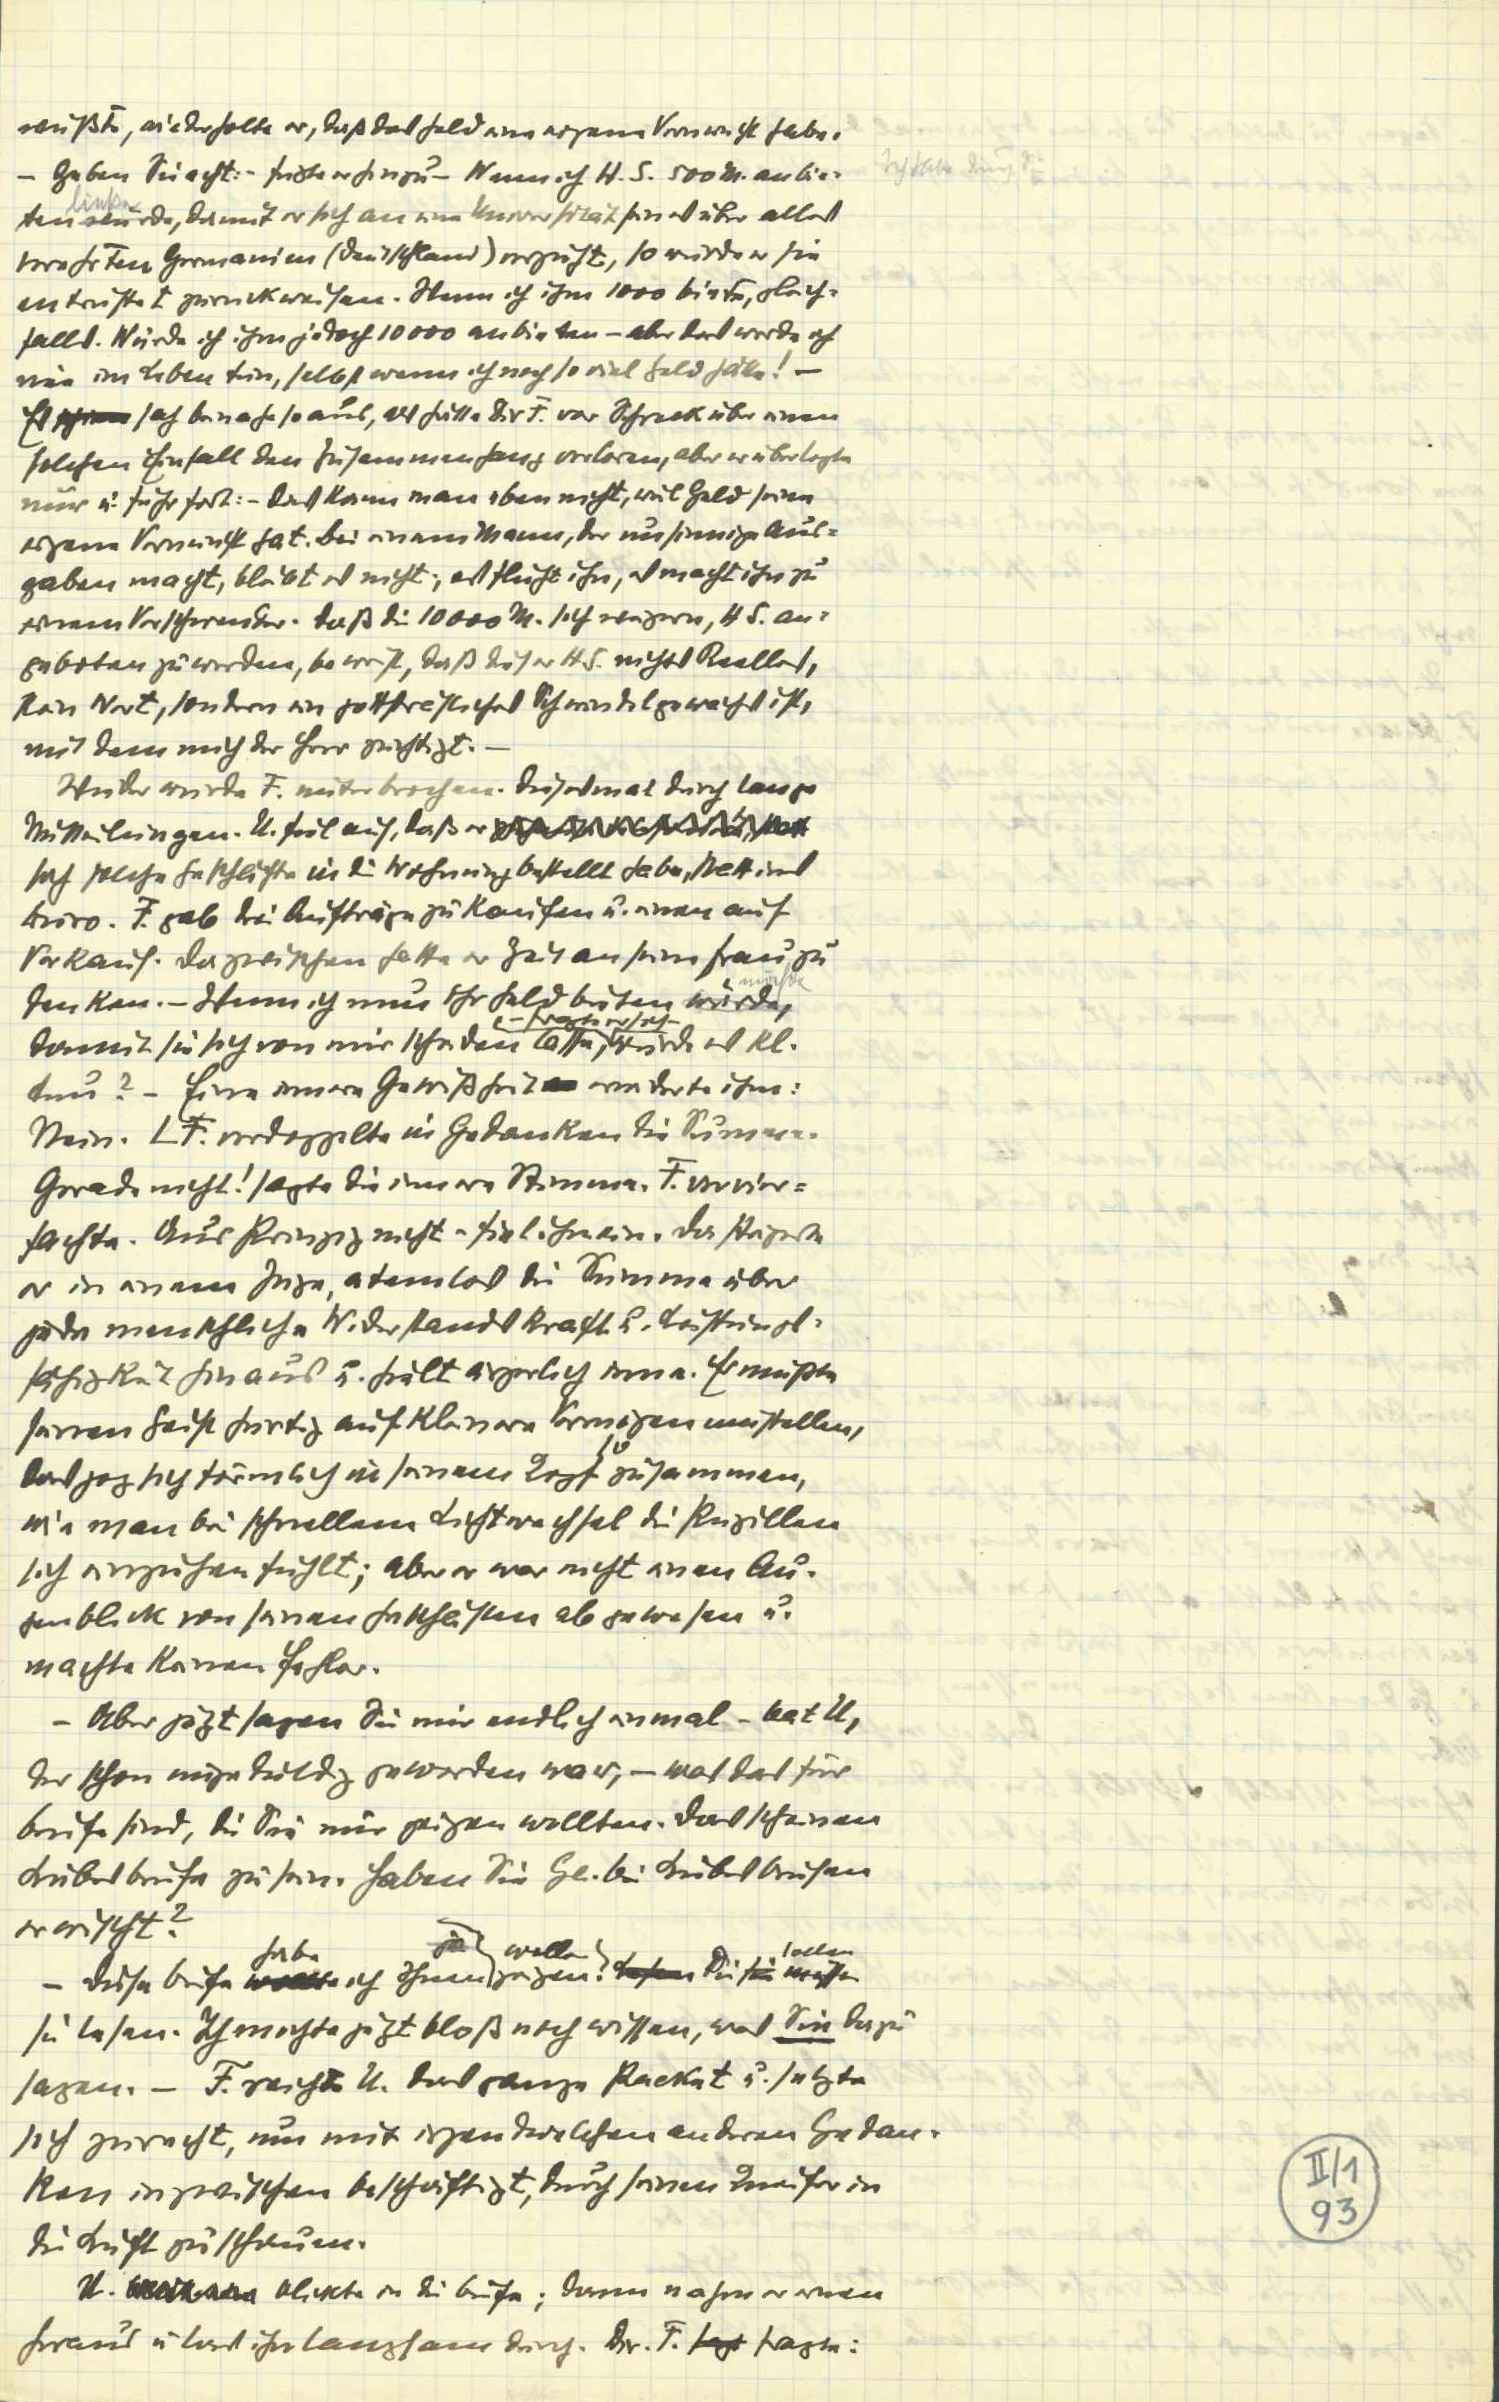 wußte, wiederholte er, daß das Geld eine eigene Vernunft habe.
– Geben Sie acht: – fügte er hinzu – Wenn ich H. S. 500 M. anbie-
ten würde, damit er sich an eine Universität seines über alles
verehrten Germanien (Deutschland) verzieht, so würde er sie
entrüstet zurückweisen. Wenn ich ihm 1000 biete, gleich-
falls. Würde ich ihm jedoch 10000 anbieten – aber das werde ich
nie im Leben tun, selbst wenn ich noch so viel Geld hätte! –
Es schien sah beinahe so aus, als hätte Dir F. vor Schreck über einen
solchen Einfall den Zusammenhang verloren, aber er überlegte
nur u. fuhr fort: – Das kann man eben nicht, weil Geld seine
eigene Vernunft hat. Bei einem Mann, der unsinnige Aus-
gaben macht, bleibt es nicht; es flieht ihn, es macht ihn zu
einem Verschwender. Daß die 10000 M. sich weigern, H S. an-
geboten zu werden, beweist, daß dieser H S. nichts Reelles,
kein Wert, sondern ein gottsträfliches Schwindelgewächs ist,
mit dem mich der Herr züchtigt. –
Wieder wurde F. unterbrochen. Diesesmal durch lange
Mitteilungen. U. fiel auf, daß er
sich solche Geschäfte in die Wohnung bestellt habe, statt ins
Büro. F. gab drei Aufträge zu Kaufen u. einen auf
Verkauf. Dazwischen hatte er Zeit an seine Frau zu
denken. – Wenn ich nun ihr Geld bieten würde,
– fragte er sich –
damit sie sich von mir scheiden lasse, würde es Kl.
tun? – Eine innere Gewißheit erwiderte ihm:
Nein. L F. verdoppelte in Gedanken die Summe.
Gerade nicht! sagte die innere Stimme. F. vervier-
fachte. Aus Prinzip nicht – fiel ihm ein. Da steigerte
er in einem Zuge, atemlos die Summe über
jede menschliche Widerstandskraft u. Leistungs-
fähigkeit hinaus u. hielt ärgerlich inne. Er mußte
seinen Geist hurtig auf kleinere Vermögen umstellen,
so
das zog sich förmlich in seinem Kopf zusammen,
wie man bei schnellem Lichtwechsel die Pupillen
sich einziehen fühlt; aber er war nicht einen Au-
genblick von seinen Geschäften abgewesen u.
machte keinen Fehler.
– Aber jetzt sagen Sie mir endlich einmal – bat U,
der schon ungeduldig geworden war, – was das für
Briefe sind, die Sie mir zeigen wollten. Das scheinen
Liebesbriefe zu sein. Haben Sie Ge. bei Liebesbriefen
erwischt?
habe ja wollen sollen
– Diese Briefe wollte ich Ihnen zeigen. Lesen Sie sie müssen
sie lesen. Ich möchte jetzt bloß noch wissen, was Sie dazu
sagen. – F. reichte U. das ganze Packet u. setzte
sich zurecht, um mit irgendwelchen anderen Gedan-
ken inzwischen beschäftigt, durch seinen Kneifer in
die Luft zu schauen.
U. blickte in die Briefe; dann nahm er einen
heraus u las ihn langsam durch. Dir. F. fragte:
II/1
93